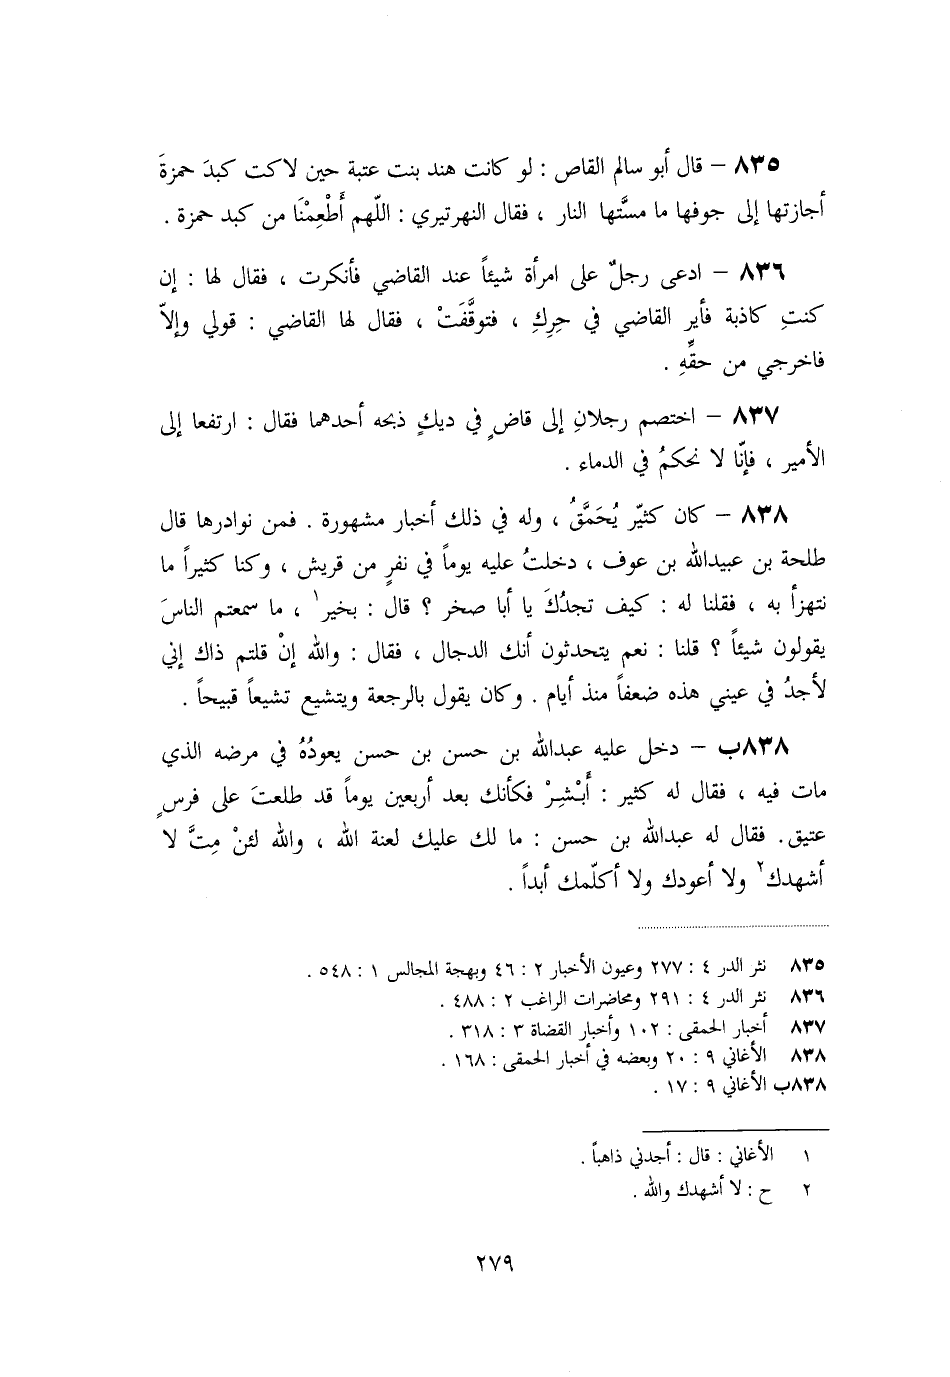 ٨٣٥ – قال أبو سالم القاص : لو كانت هند بنت عتبة حين لاكت كبدَ حمزةَ
أجازتها إلى جوفها ما مسَّتها النار ، فقال النهرتيري : اللّهم أَطْعِمْنَا من كبد حمزة .
٨٣٦ – ادعى رجلٌ على امرأة شيئاً عند القاضي فأنكرت ، فقال لها : إن
كنتِ كاذبة فأير القاضي في حِرِكِ ، فتوقَّفَتْ ، فقال لها القاضي : قولي وإلاّ
فاخرجي من حقِّهِ .
٨٣٧ – اختصم رجلانِ إلى قاضٍ في ديكٍ ذبحه أحدهما فقال : ارتفعا إلى
الأمير ، فإنّا لا نحكمُ في الدماء .
٨٣٨ – كان كثيّر يُحَمَّقُ ، وله في ذلك أخبار مشهورة . فمن نوادرها قال
طلحة بن عبيدالله بن عوف ، دخلتُ عليه يوماً في نفرٍ من قريش ، وكنا كثيراً ما
نتهزأ به ، فقلنا له : كيف تجدُكَ يا أبا صخر ؟ قال : بخير١ ، ما سمعتم الناسَ
يقولون شيئاً ؟ قلنا : نعم يتحدثون أنك الدجال ، فقال : والله إنْ قلتم ذاك إني
لأجدُ في عيني هذه ضعفاً منذ أيام . وكان يقول بالرجعة ويتشيع تشيعاً قبيحاً .
٨٣٨ب – دخل عليه عبدالله بن حسن بن حسن يعودُهُ في مرضه الذي
مات فيه ، فقال له كثير : أَبْشِرْ فكأنك بعد أربعين يوماً قد طلعتَ على فرسٍ
عتيق. فقال له عبدالله بن حسن : ما لك عليك لعنة الله ، والله لئنْ مِتَّ لا
أشهدك٢ ولا أعودك ولا أكلّمك أبداً .
٨٣٥ نثر الدر ٤ : ٢٧٧ وعيون الأخبار ٢ : ٤٦ وبهجة المجالس ١ : ٥٤٨ .
٨٣٦ نثر الدر ٤ : ٢٩١ ومحاضرات الراغب ٢ : ٤٨٨ .
٨٣٧ أخبار الحمقى : ١٠٢ وأخبار القضاة ٣ : ٣١٨ .
٨٣٨ الأغاني ٩ : ٢٠ وبعضه في أخبار الحمقى : ١٦٨ .
٨٣٨ب الأغاني ٩ : ١٧ .
١ الأغاني : قال : أجدني ذاهباً .
٢ ح : لا أشهدك والله .
٢٧٩